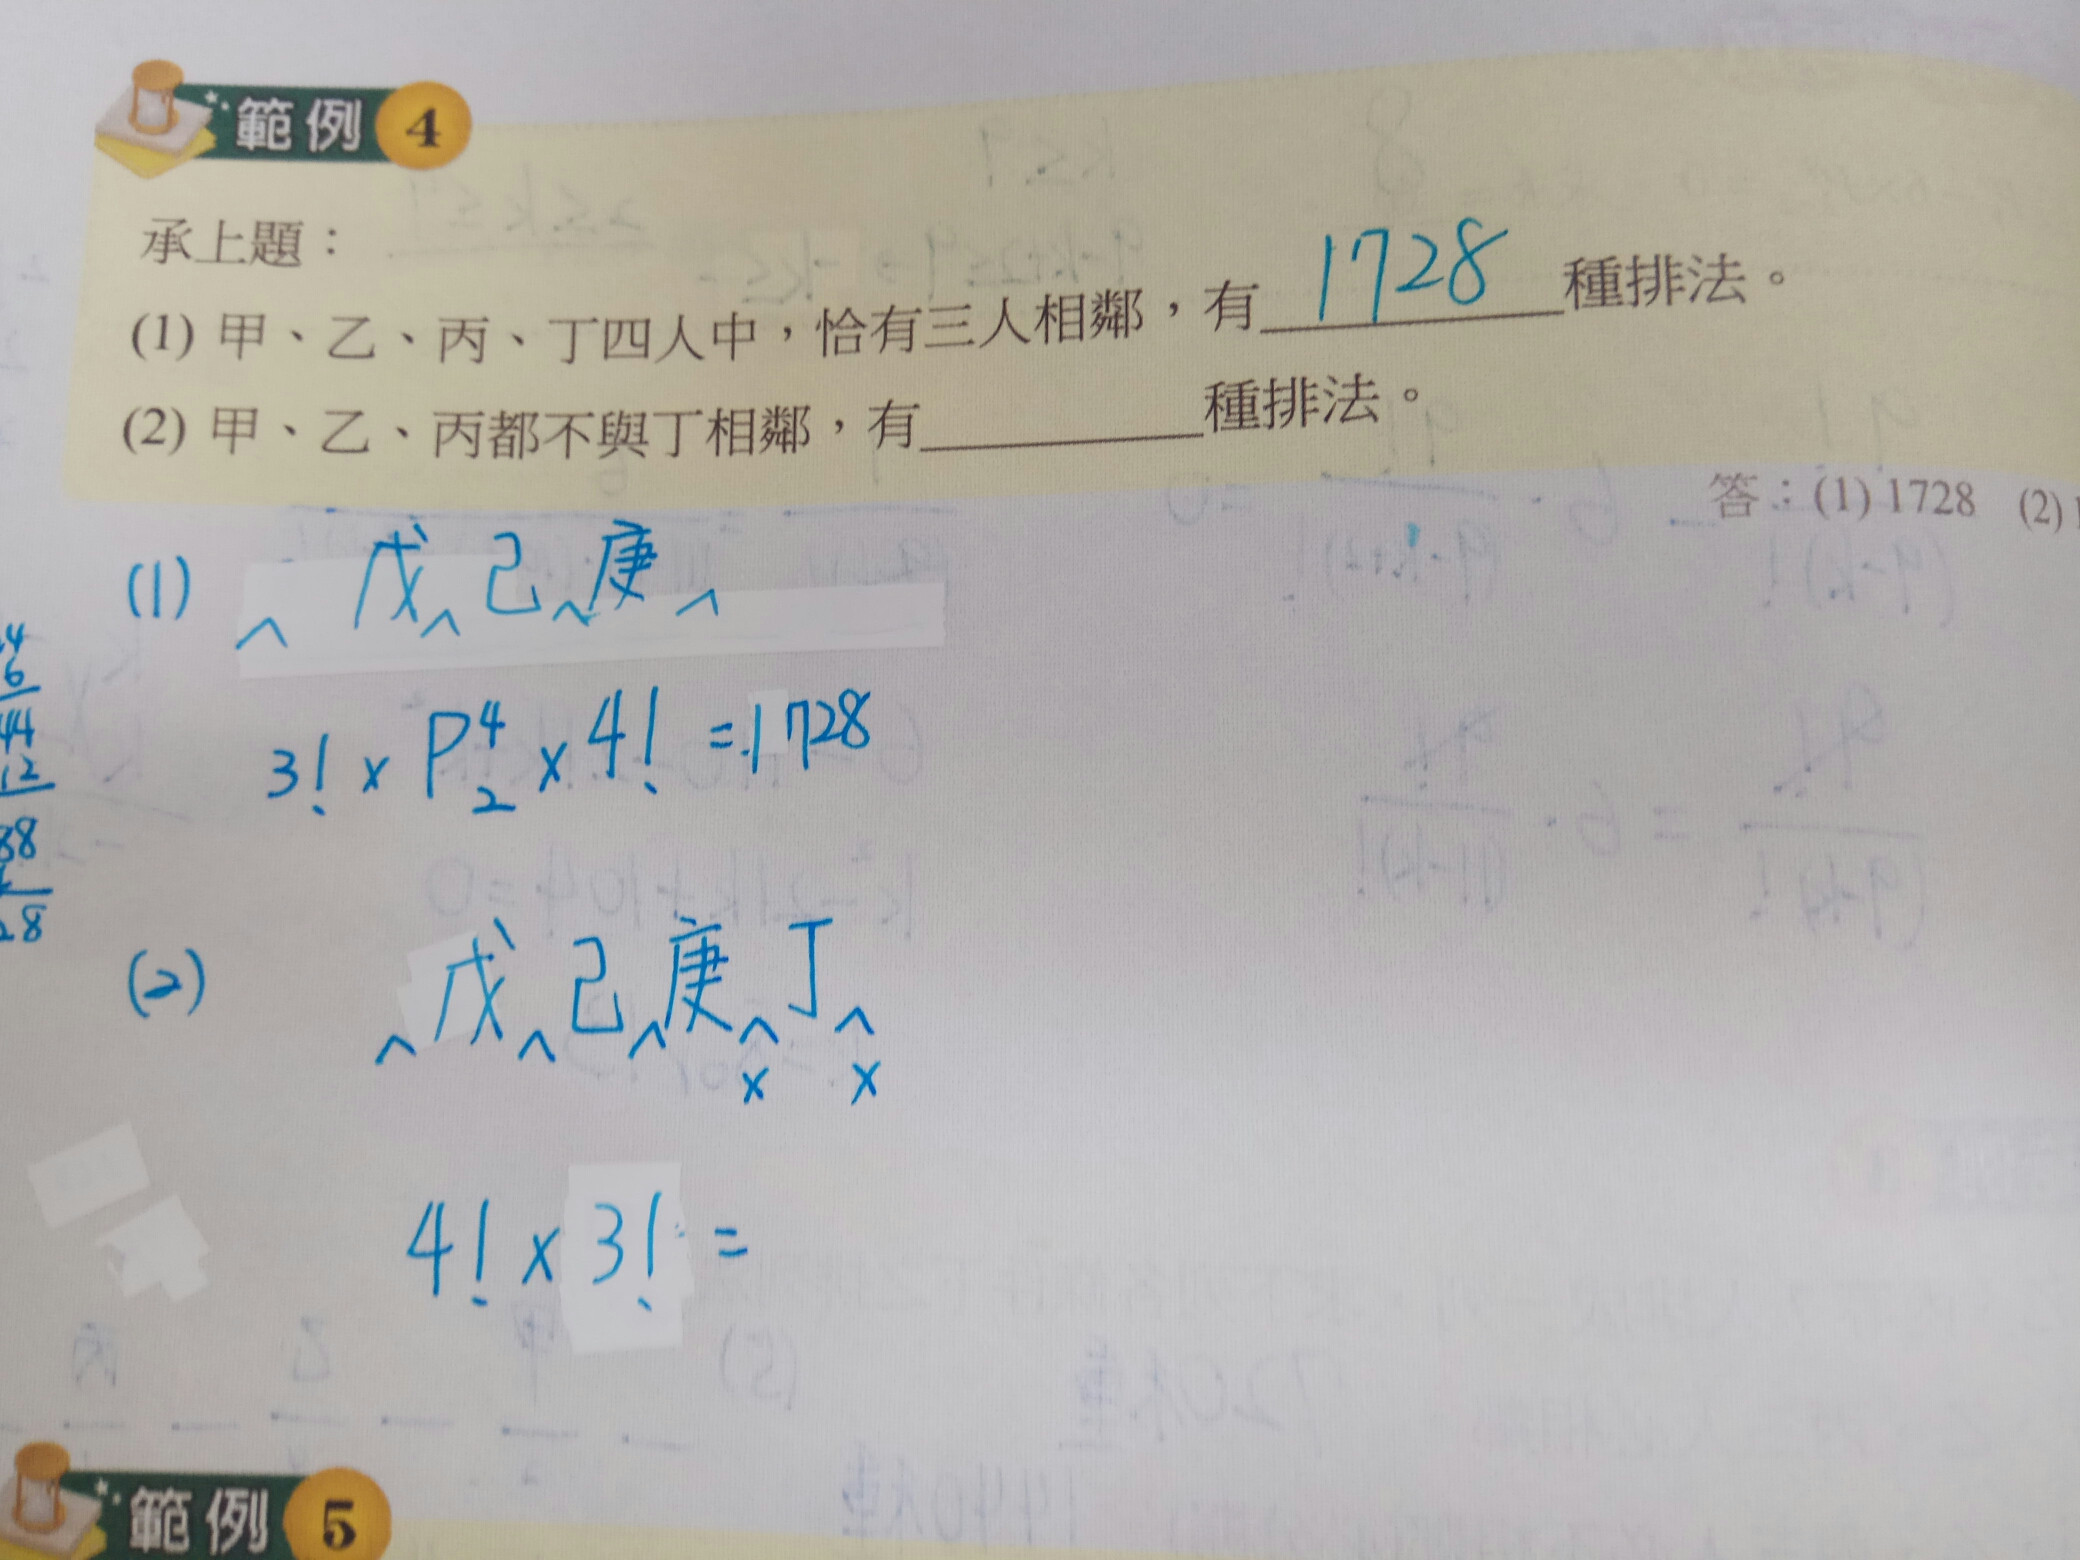 範例 4
承上題：
(1) 甲、乙、丙、丁四人中，恰有三人相鄰，有 1728 種排法。
(2) 甲、乙、丙都不與丁相鄰，有 種排法。
答：(1) 1728 (2) 1
(1) ^ 戊 ^ 己 ^ 庚 ^
3! × P⁴₂ × 4! = 1728
(2) ^ 戊 ^ 己 ^ 庚 ^ 丁 ^
× ×
4! × 3! =
範例 5